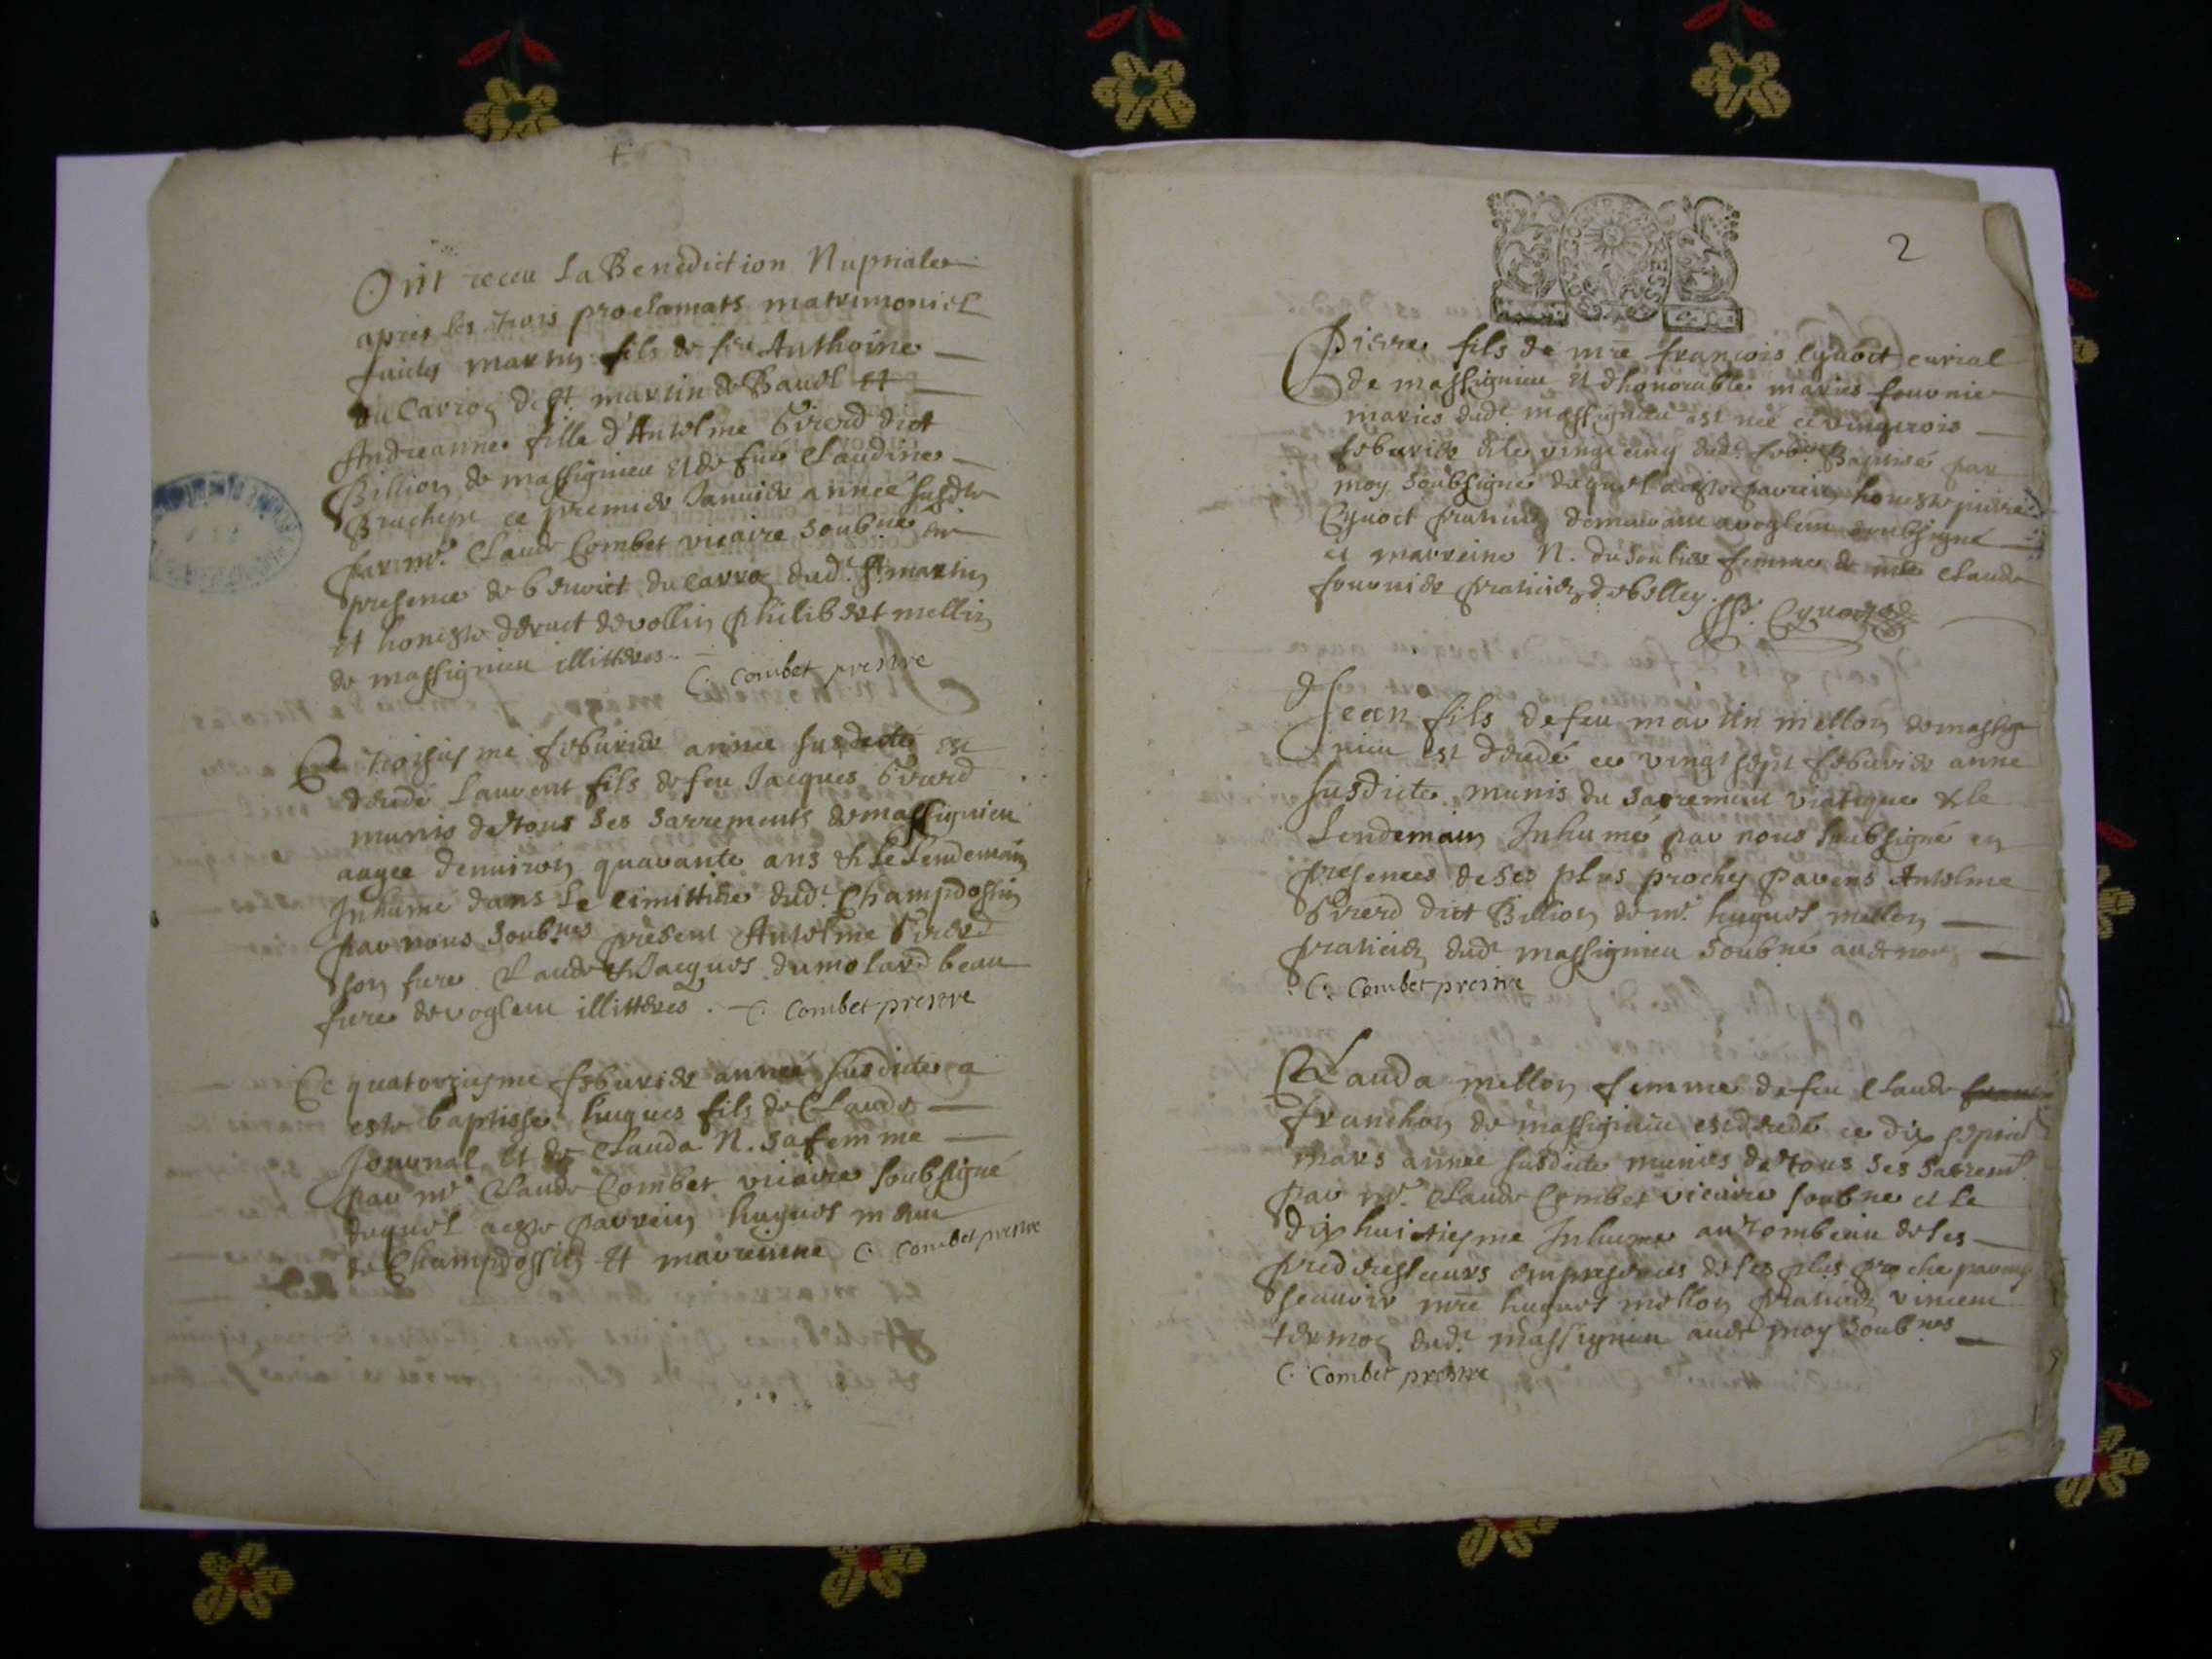 Ont receu La Benediction Nuptiale
apres les trois proclamats matrimoniel
martin fils de feu Anthoine
du Carroz de St martin de Bavel et
Andreanne fille d'Antelme Girerd dict
Billion de massignieu et de fue Claudine
ce premier Januier année susdte
par mr. Claude Combet vicaire soubné en
presence de benoict du carroz dud. St martin
et honeste philibert mellin
de massignieu illitteres.
C. Combet prestre
Ce troisiesme feburier annee susdicte est
decedé Laurent fils de feu Jacques Girerd
munis de tous ses sacrements de massignieu
aagee denuiron quarante ans & le Lendemain
Inhume dans Le cimittiere dud. Champdossin
par nous soubnes present Antelme Girerd
son frere Claude & Jacques dumolard beau
frere de voglen illitteres. C. Combet prestre
Ce quatorziesme feburier année susdicte a
este baptisse hugues fils de Claude
Journal et de Clauda N. sa femme
par mr Claude Combet vicaire soubsigné
duquel a este parrein hugues
de Champdossin et marrienne C. Combet prestre
2
BOURGOGNE BRESSE
Pierre fils de mre francois Cyuoct curial
de massignieu et dhonorable maries fournier
maries dudt massignieu est neé ce vingtrois
feburier & le vingt cinq dudt Baptisé par
moy soubsigné duquel a este parrein honeste pierre
Cyuoct praticien demeurant a voglen soubsigné
et marreine N. du Soulier femme de mre Claude
fournier praticien de belley.
Cyuoct
Jean fils de feu martin mellon de massig
nieu est decedé ce vingt sept feburier anne
susdicte munis du sacrement viatique & le
Lendemain Inhumé par nous soubsigné en
presences de ses plus proches parens Antelme
Girerd dict Billion de mr. hugues mellon
praticien dudt massignieu soubné auec nous
C. Combet prestre
Clauda mellon femme de feu Claude
franchon de massignieu est decedé ce dix septie
mars annee susdicte munies de tous ses sacremt
par mr. Claude Combet vicaire soubne et Le
dix huictiesme Inhumé au tombeau de ses
predecesseurs en presences de ses plus proche parens
scauoir mre hugues mellon praticien vincent
termoz dudt massignieu auec moy soubnes
C. Combet prestre